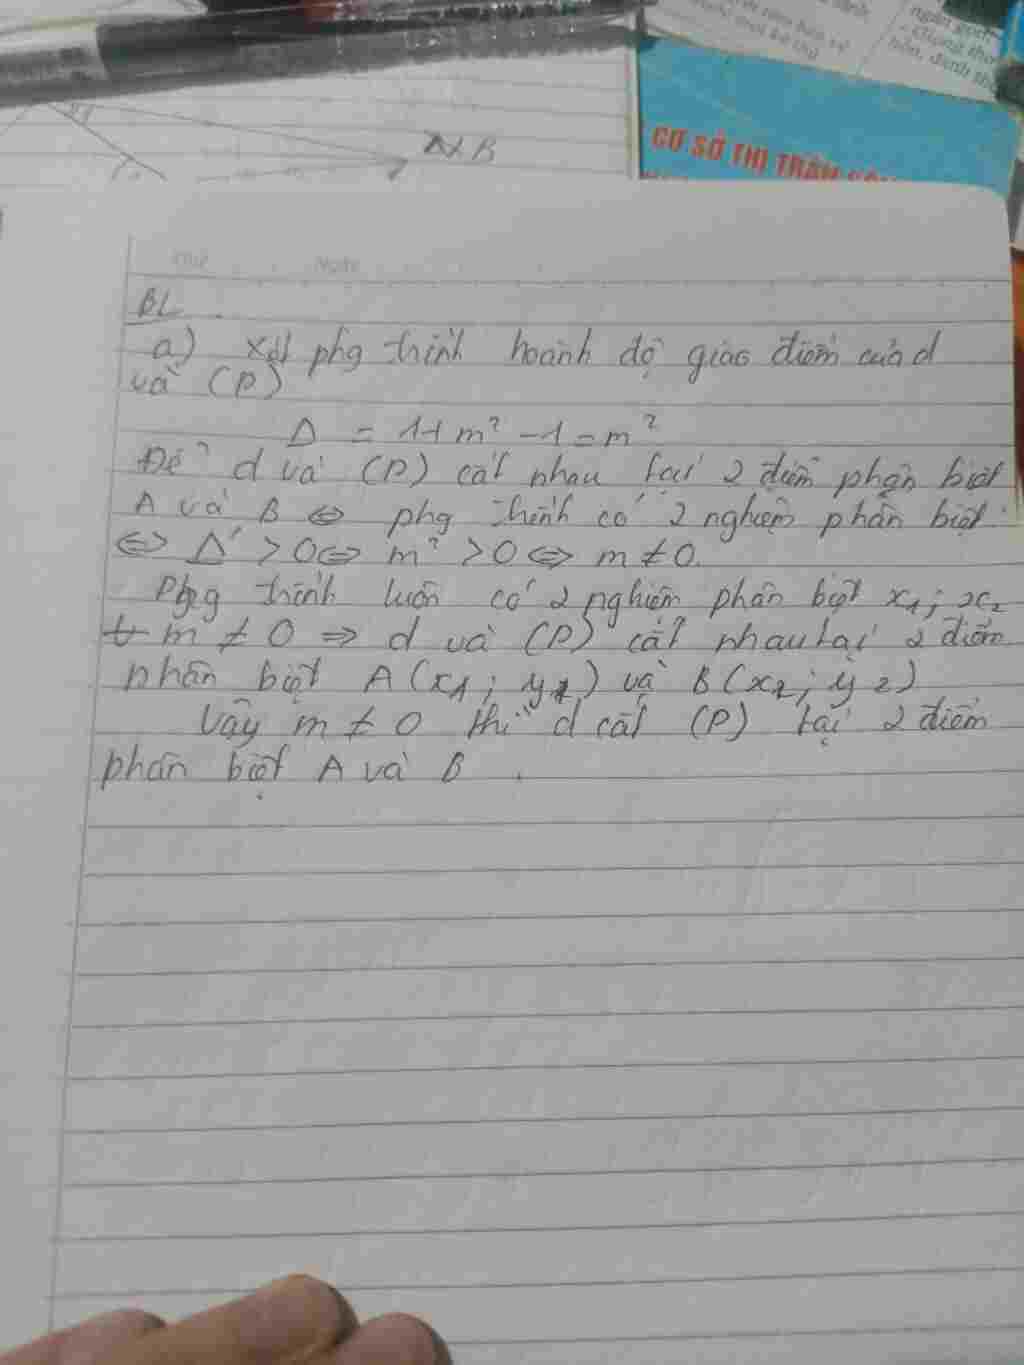 B
CƠ SỞ THỊ TRẤN
Thứ Ngày
BL
a) Xét phg trình hoành độ giao điểm của d
và (P)
Δ = 1 + m² - 1 = m²
Để d và (P) cắt nhau tại 2 điểm phân biệt
A và B ⇔ phg trình có 2 nghiệm phân biệt
⇔ Δ' > 0 ⇔ m² > 0 ⇔ m ≠ 0.
Phg trình luôn có 2 nghiệm phân biệt x₁; x₂
m ≠ 0 ⇒ d và (P) cắt nhau tại 2 điểm
phân biệt A(x₁; y₁) và B(x₂; y₂)
Vậy m ≠ 0 thì d cắt (P) tại 2 điểm
phân biệt A và B.